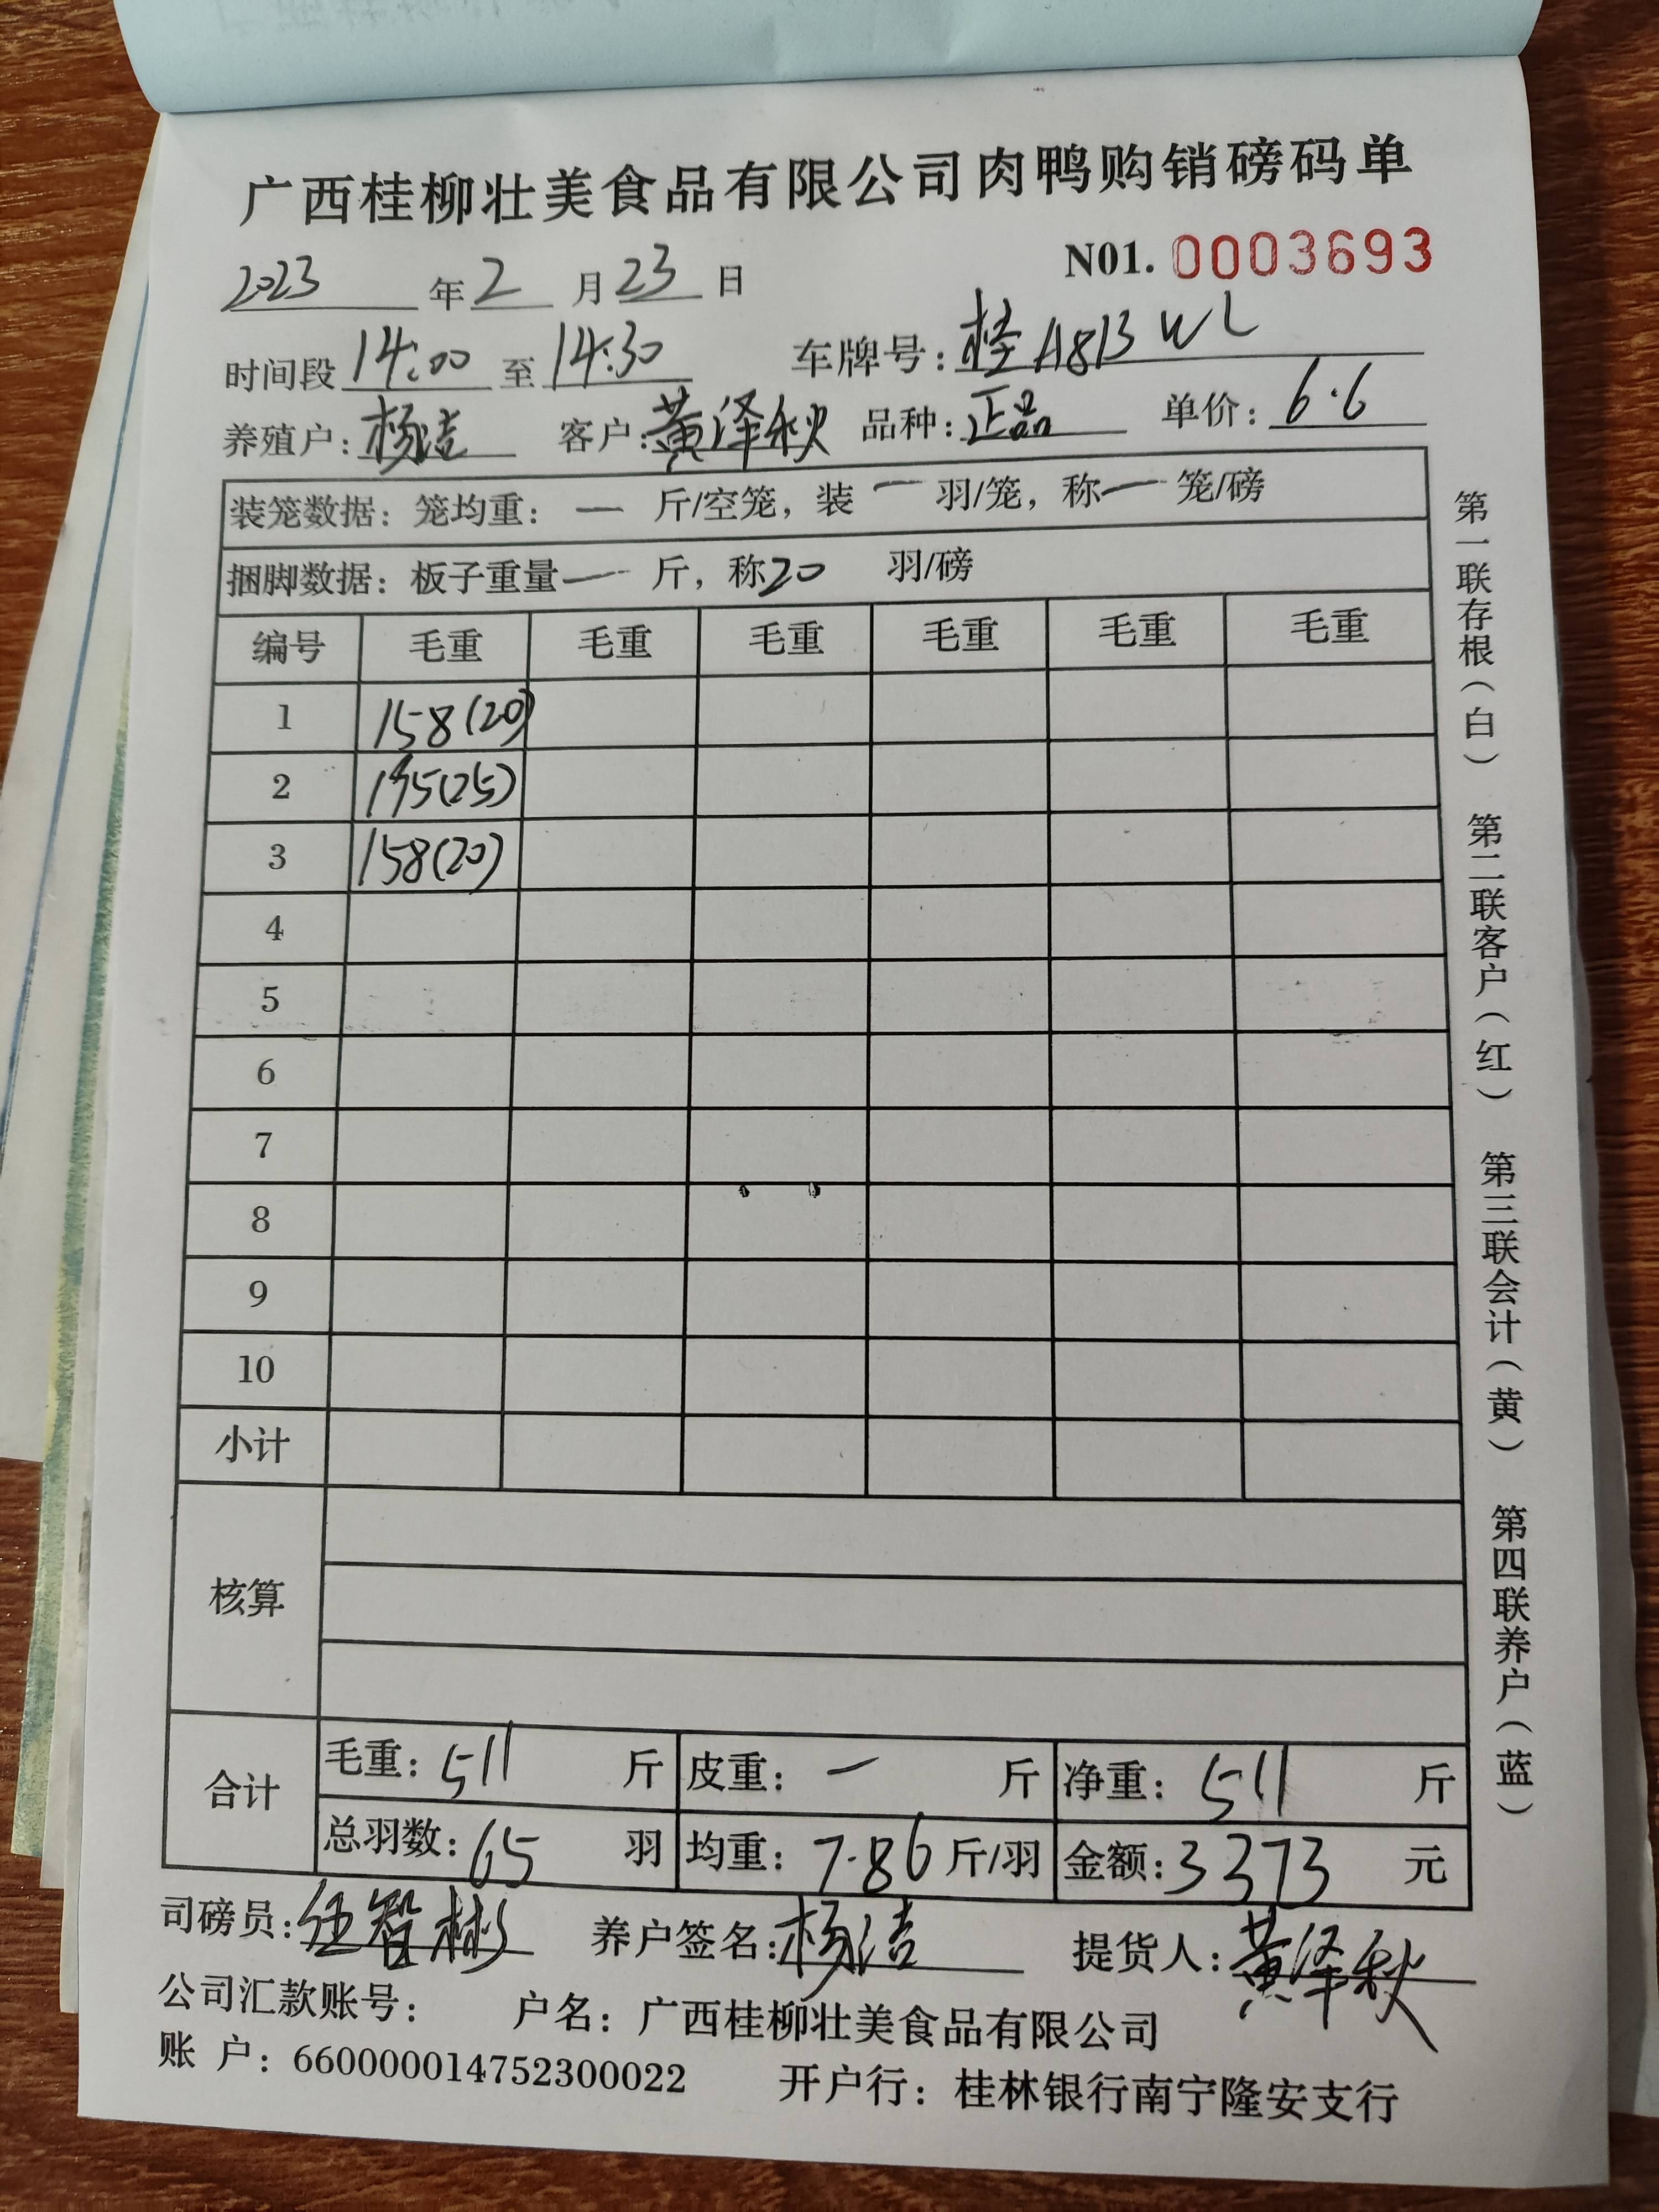 广西桂柳壮美食品有限公司肉鸭购销磅码单
N01. 0003693
2023 年 2 月 23 日
时间段 14:00 至 14:30 车牌号: 桂A813WL
养殖户: 杨洁 客户: 黄泽秋 品种: 正品 单价: 6.6
装笼数据: 笼均重: 一 斤/空笼, 装 一 羽/笼, 称 一 笼/磅
捆脚数据: 板子重量 一 斤, 称20 羽/磅
编号 毛重 毛重 毛重 毛重 毛重 毛重
1 158(20)
2 195(25)
3 158(20)
4
5
6
7
8
9
10
小计
核算
合计
毛重: 511 斤 皮重: 一 斤 净重: 511 斤
总羽数: 65 羽 均重: 7.86 斤/羽 金额: 3373 元
司磅员: 伍智彬 养户签名: 杨洁 提货人: 黄泽秋
公司汇款账号: 户名: 广西桂柳壮美食品有限公司
账 户: 660000014752300022 开户行: 桂林银行南宁隆安支行
第一联存根(白) 第二联客户(红) 第三联会计(黄) 第四联养户(蓝)